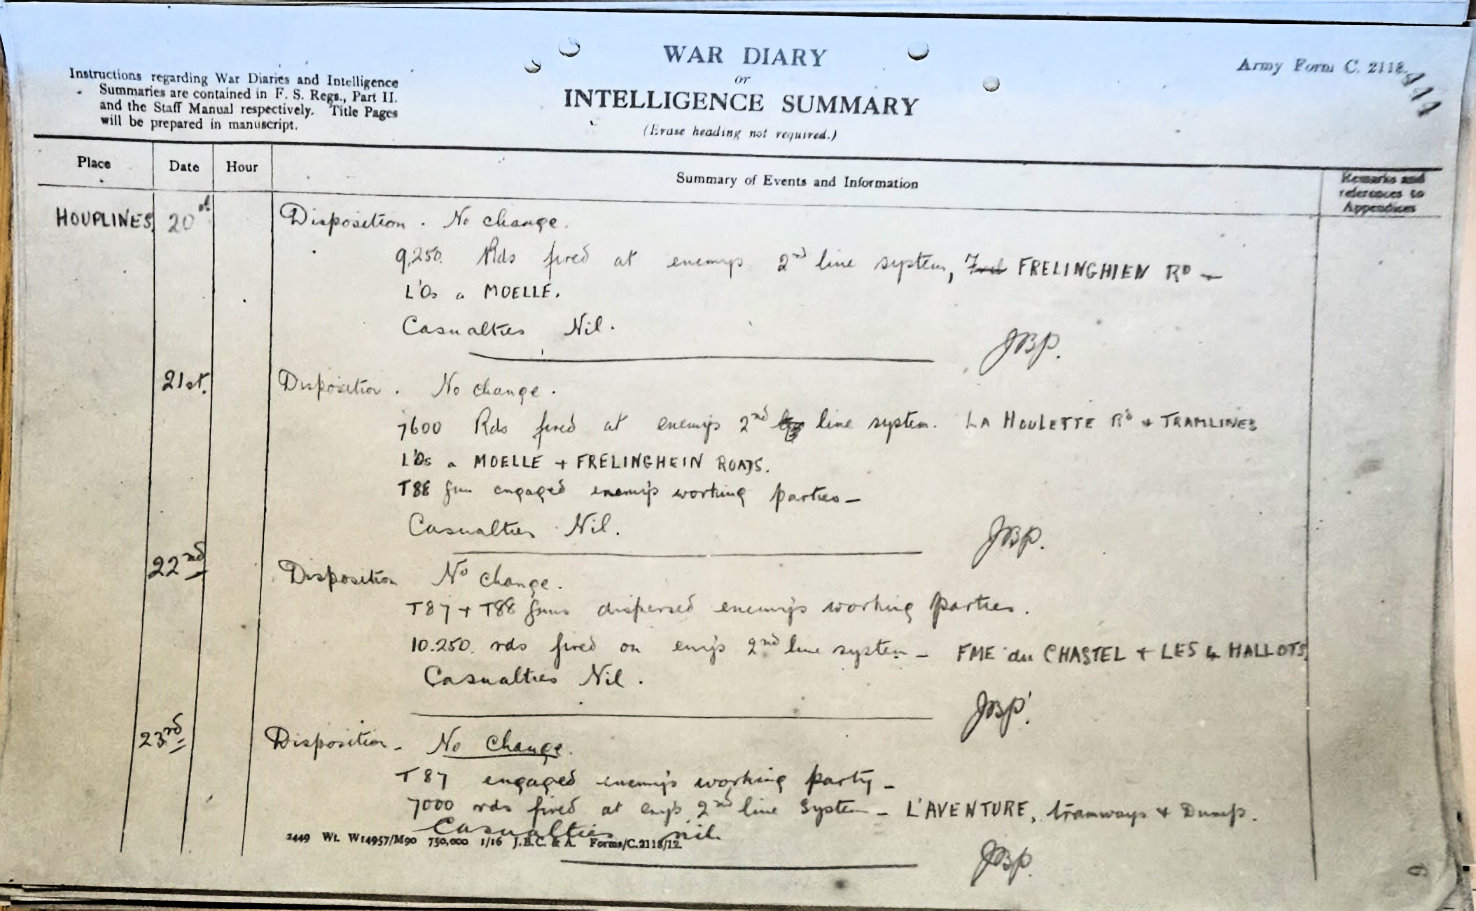 Instructions regarding War Diaries and Intelligence
Summaries are contained in F. S. Regs., Part II.
and the Staff Manual respectively. Title Pages
will be prepared in manuscript.
WAR DIARY
or
INTELLIGENCE SUMMARY
(Erase heading not required.)
Army Form C. 2118.
Place
Date
Hour
Summary of Events and Information
Remarks and
references to
Appendices
HOUPLINES
20st
Disposition. No change.
9,250. Rds fired at enemys 2nd line system, FRELINGHIEN RD –
L'Os a MOELLE.
Casualties Nil.
JBP.
21st.
Disposition. No change.
7600 Rds fired at enemy's 2nd line system. LA HOULETTE Rd + TRAMLINES
L'Os a MOELLE + FRELINGHEIN ROADS.
T88 gun engaged enemy's working parties –
Casualties Nil.
JBP.
22nd
Disposition No change.
T87 + T88 guns dispersed enemy's working parties.
10.250. rds fired on emy's 2nd line system – FME du CHASTEL + LES 4 HALLOTS
Casualties Nil.
JBP.
23rd
Disposition – No Change.
T87 engaged enemy's working party –
7000 rds fired at emy's 2nd line System – L'AVENTURE, tramways + Dump.
Casualties nil.
2449 Wt. W14957/M90 750,000 1/16 J.B.C. & A. Forms/C.2118/12.
JBP.
9